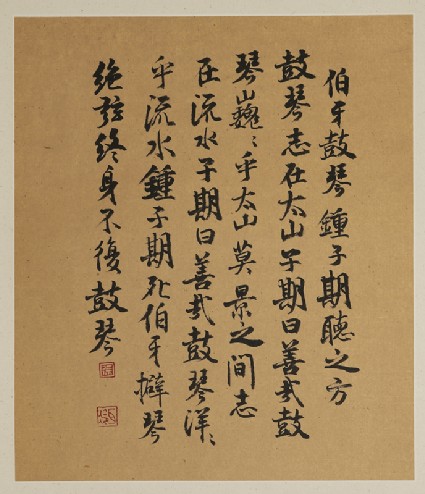 伯牙鼓琴鍾子期聽之方
鼓琴志在太山子期曰善哉鼓
琴巍〻乎太山莫景之間志
在流水子期曰善哉鼓琴洋〻
乎流水鍾子期死伯牙擗琴
絕弦終身不復鼓琴